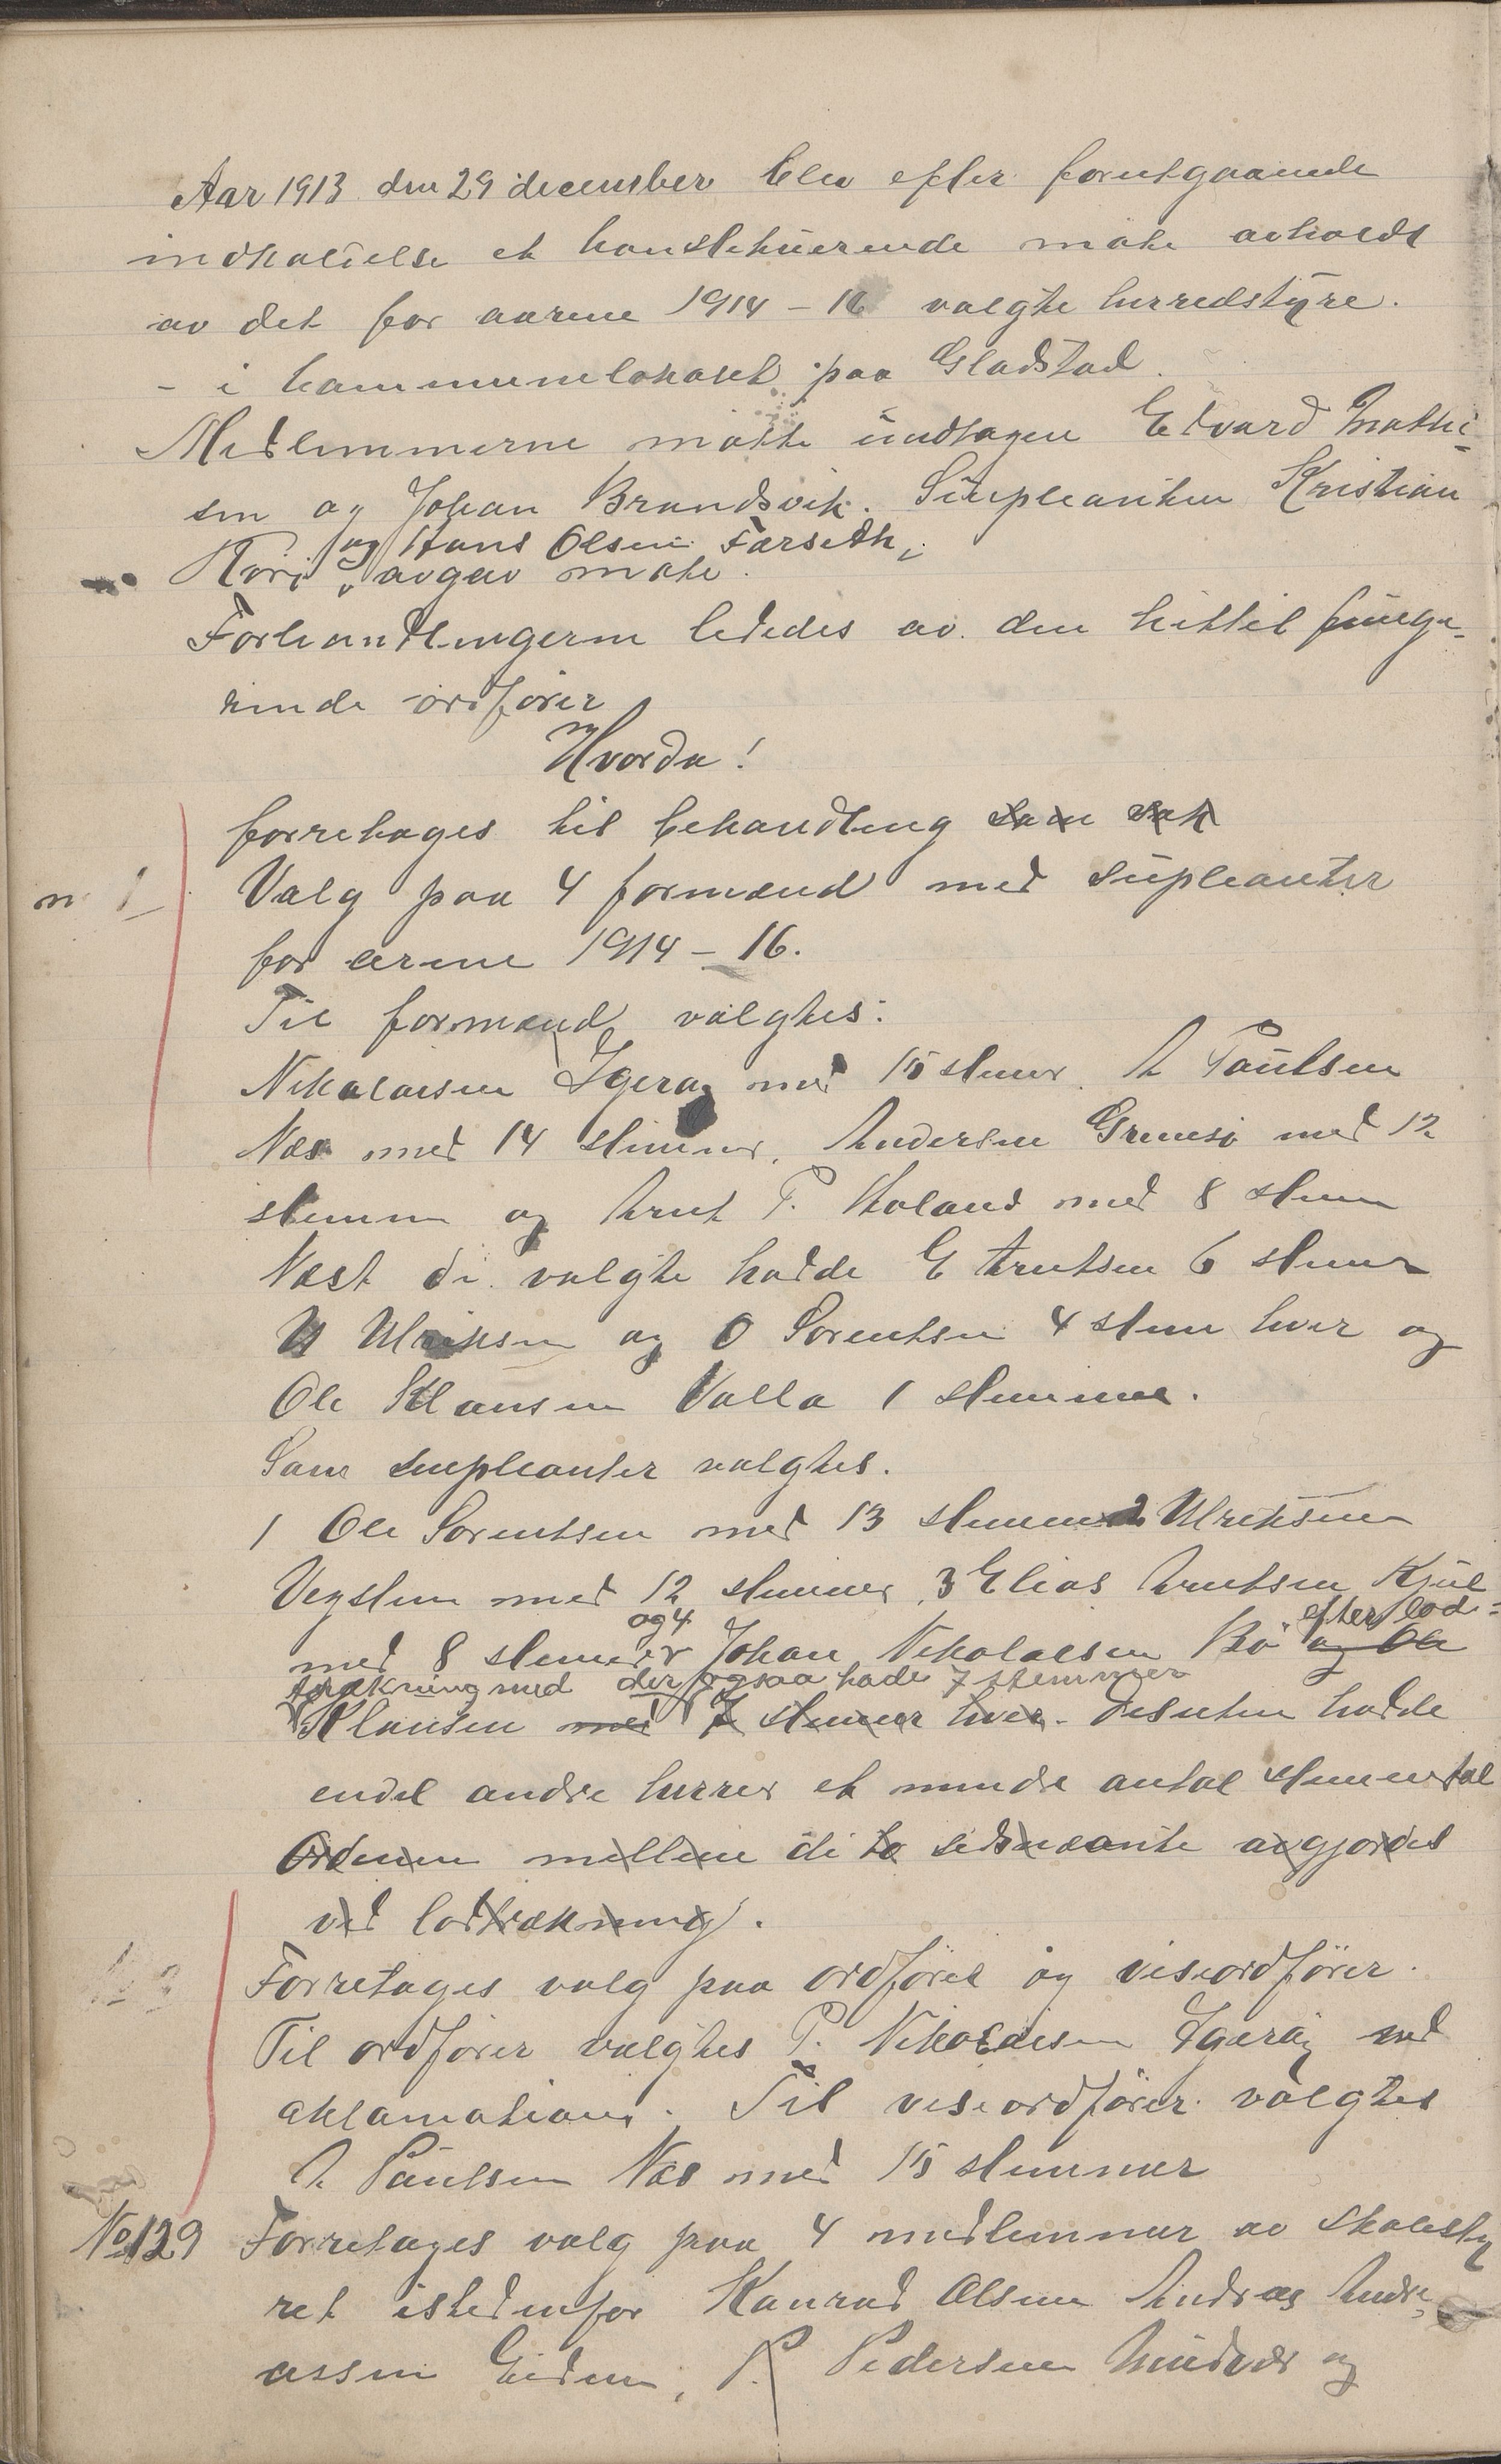 Aar 1913 den 29 december blev efter forutgaaende
indkaldelse et konstituerende møte avholdt
av det for aarene 1914 – 16 valgte herredstyre.
- i kommunelokalet paa Gladstad.
Medlemmerne møtte undtagen Edvard Matti=
sen og Johan Brandsvik. Supleanten Kristian
og Hans Olsen Færseth,
Rørø, avgav møte.
Forhandlingerne lededes av den hittil funge-
rende ordfører
Hvorda!
forretages til behandling som sak
nr 1 Valg paa 4 formænd med supleanter
for årene 1914 – 16.
Til formænd valgtes:
Nikolaisen Igerøy med 15 stemmer. A Paulsen
Næs med 14 stemmer, Andersen Gremsø med 12
stemmer og Arnt P. Holand med 8 stemmer
Næst de valgte hadde E Arntsen 6 stemmer
U Ulriksen og O Sørentsen 4 stemmer hver og
Ole Klausen Valla 1 stemme.
Som supleanter valgtes.
1 Ole Sørentsen med 13 stemmer 2 Ulriksen
Vegsten med 12 stemmer, 3 Elias Arntsen Kjul
og 4 efter lod=
med 8 stemmer Johan Nikolaisen Bø og Ole
trækning med der ogsaa hade 7 stemmer
Klausen med 7 stemmer hver. Desuten hadde
endel andre herrer et mindre antal stemmetal
Ordenen mellem de to sidsnævnte avgjordes
ved lodtrækning.
No 2 Forretages valg paa ordfører og viseordfører.
Til ordfører valgtes P. Nikolaisen Igerøy ved
aklamation. Til viseordfører valgtes
A Paulsen Næs med 15 stemmer
No 129 Forretages valg paa 4 medlemmer av skolesty
ret istedenfor Konrad Olsen Andreas Andre,
assen Eidem, P. Pedersen og